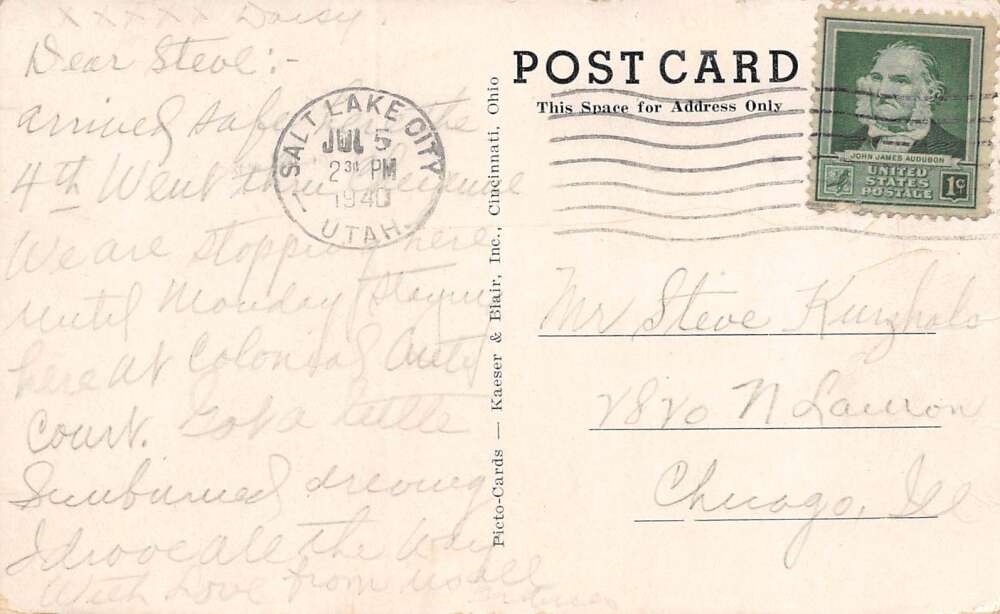 x x x x x Daisy
Dear Steve:-
arrived safe the
4th Went thru
We are stopping here
until Monday staying
here at Colonial Auto
Court. Got a little
Sunburned driveing
I drove all the way
With Love from us all
SALT LAKE CITY
JUL 5
2 30 PM
1940
UTAH
Picto-Cards — Kaeser & Blair, Inc., Cincinnati, Ohio
POST CARD
This Space for Address Only
JOHN JAMES AUDUBON
UNITED
STATES
POSTAGE
1¢
Mr Steve
N
Chicago, Ill